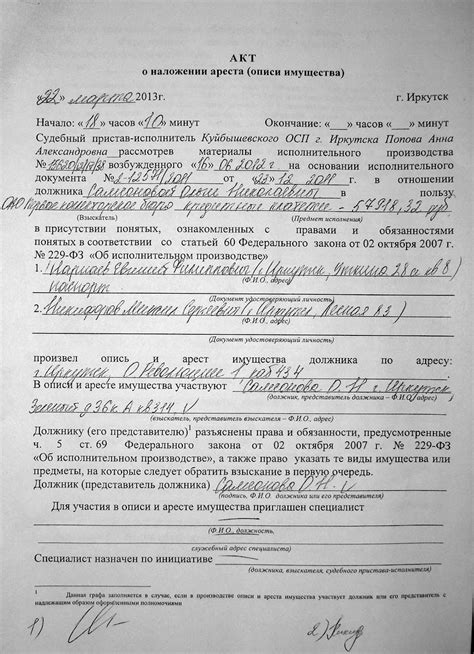 АКТ
о наложении ареста (описи имущества)
«22» марта 2013г. г. Иркутск
Начало: «18» часов «10» минут Окончание: «__» часов «__» минут
Судебный пристав-исполнитель Куйбышевского ОСП г. Иркутска Попова Анна
Александровна рассмотрев материалы исполнительного производства
№ возбужденного «16» 06.2012 г. на основании исполнительного
документа № от «23» 12.2011 г. в отношении
должника в пользу
ОАО Первое коллекторское бюро кредитные платежи - 57918,32 руб.
(Взыскатель) (Предмет исполнения)
в присутствии понятых, ознакомленных с правами и обязанностями
понятых в соответствии со статьей 60 Федерального закона от 02 октября 2007 г.
№ 229-ФЗ «Об исполнительном производстве»
1. г. Иркутск, 28 кв 8
(Ф.И.О., адрес)
паспорт
(Документ удостоверяющий личность)
2. Никифоров Михаил Сергеевич (г. Иркутск, Лесная
(Ф.И.О., адрес)
(Документ удостоверяющий личность)
произвел опись и арест имущества должника по адресу:
г. Иркутск, О. Революции 1
В описи и аресте имущества участвуют г. Иркутск
(должник, представитель должника – Ф.И.О.)
(взыскатель, представитель взыскателя – Ф.И.О., адрес)
Должнику (его представителю)1 разъяснены права и обязанности, предусмотренные
ч. 5 ст.69 Федерального закона от 02 октября 2007 г. № 229-ФЗ
«Об исполнительном производстве», а также право указать те виды имущества или
предметы, на которые следует обратить взыскание в первую очередь.
Должник (представитель должника)
(подпись, Ф.И.О. должника или его представителя)
Для участия в описи и аресте имущества приглашен специалист
(Ф.И.О., должность,
служебный адрес специалиста)
Специалист назначен по инициативе
(должника, взыскателя, судебного пристава-исполнителя)
1 Данная графа заполняется в случае, если в производстве описи и ареста имущества участвует должник или его представитель с
надлежащим образом оформленными полномочиями
1) 2)